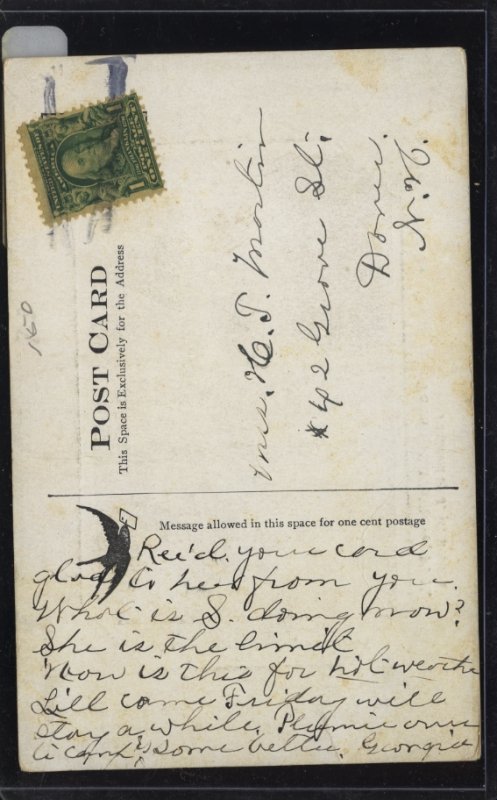 POST CARD
This Space is Exclusively for the Address
Mrs. H. T. Martin
42 Grove St.
Dover,
N.H.
150
Message allowed in this space for one cent postage
Rec'd your card
glad to hear from you.
What is S. doing now?
She is the limit
How is this for hot weather
Lill came Friday will
stay a while. over
to camp. Some better. Georgia